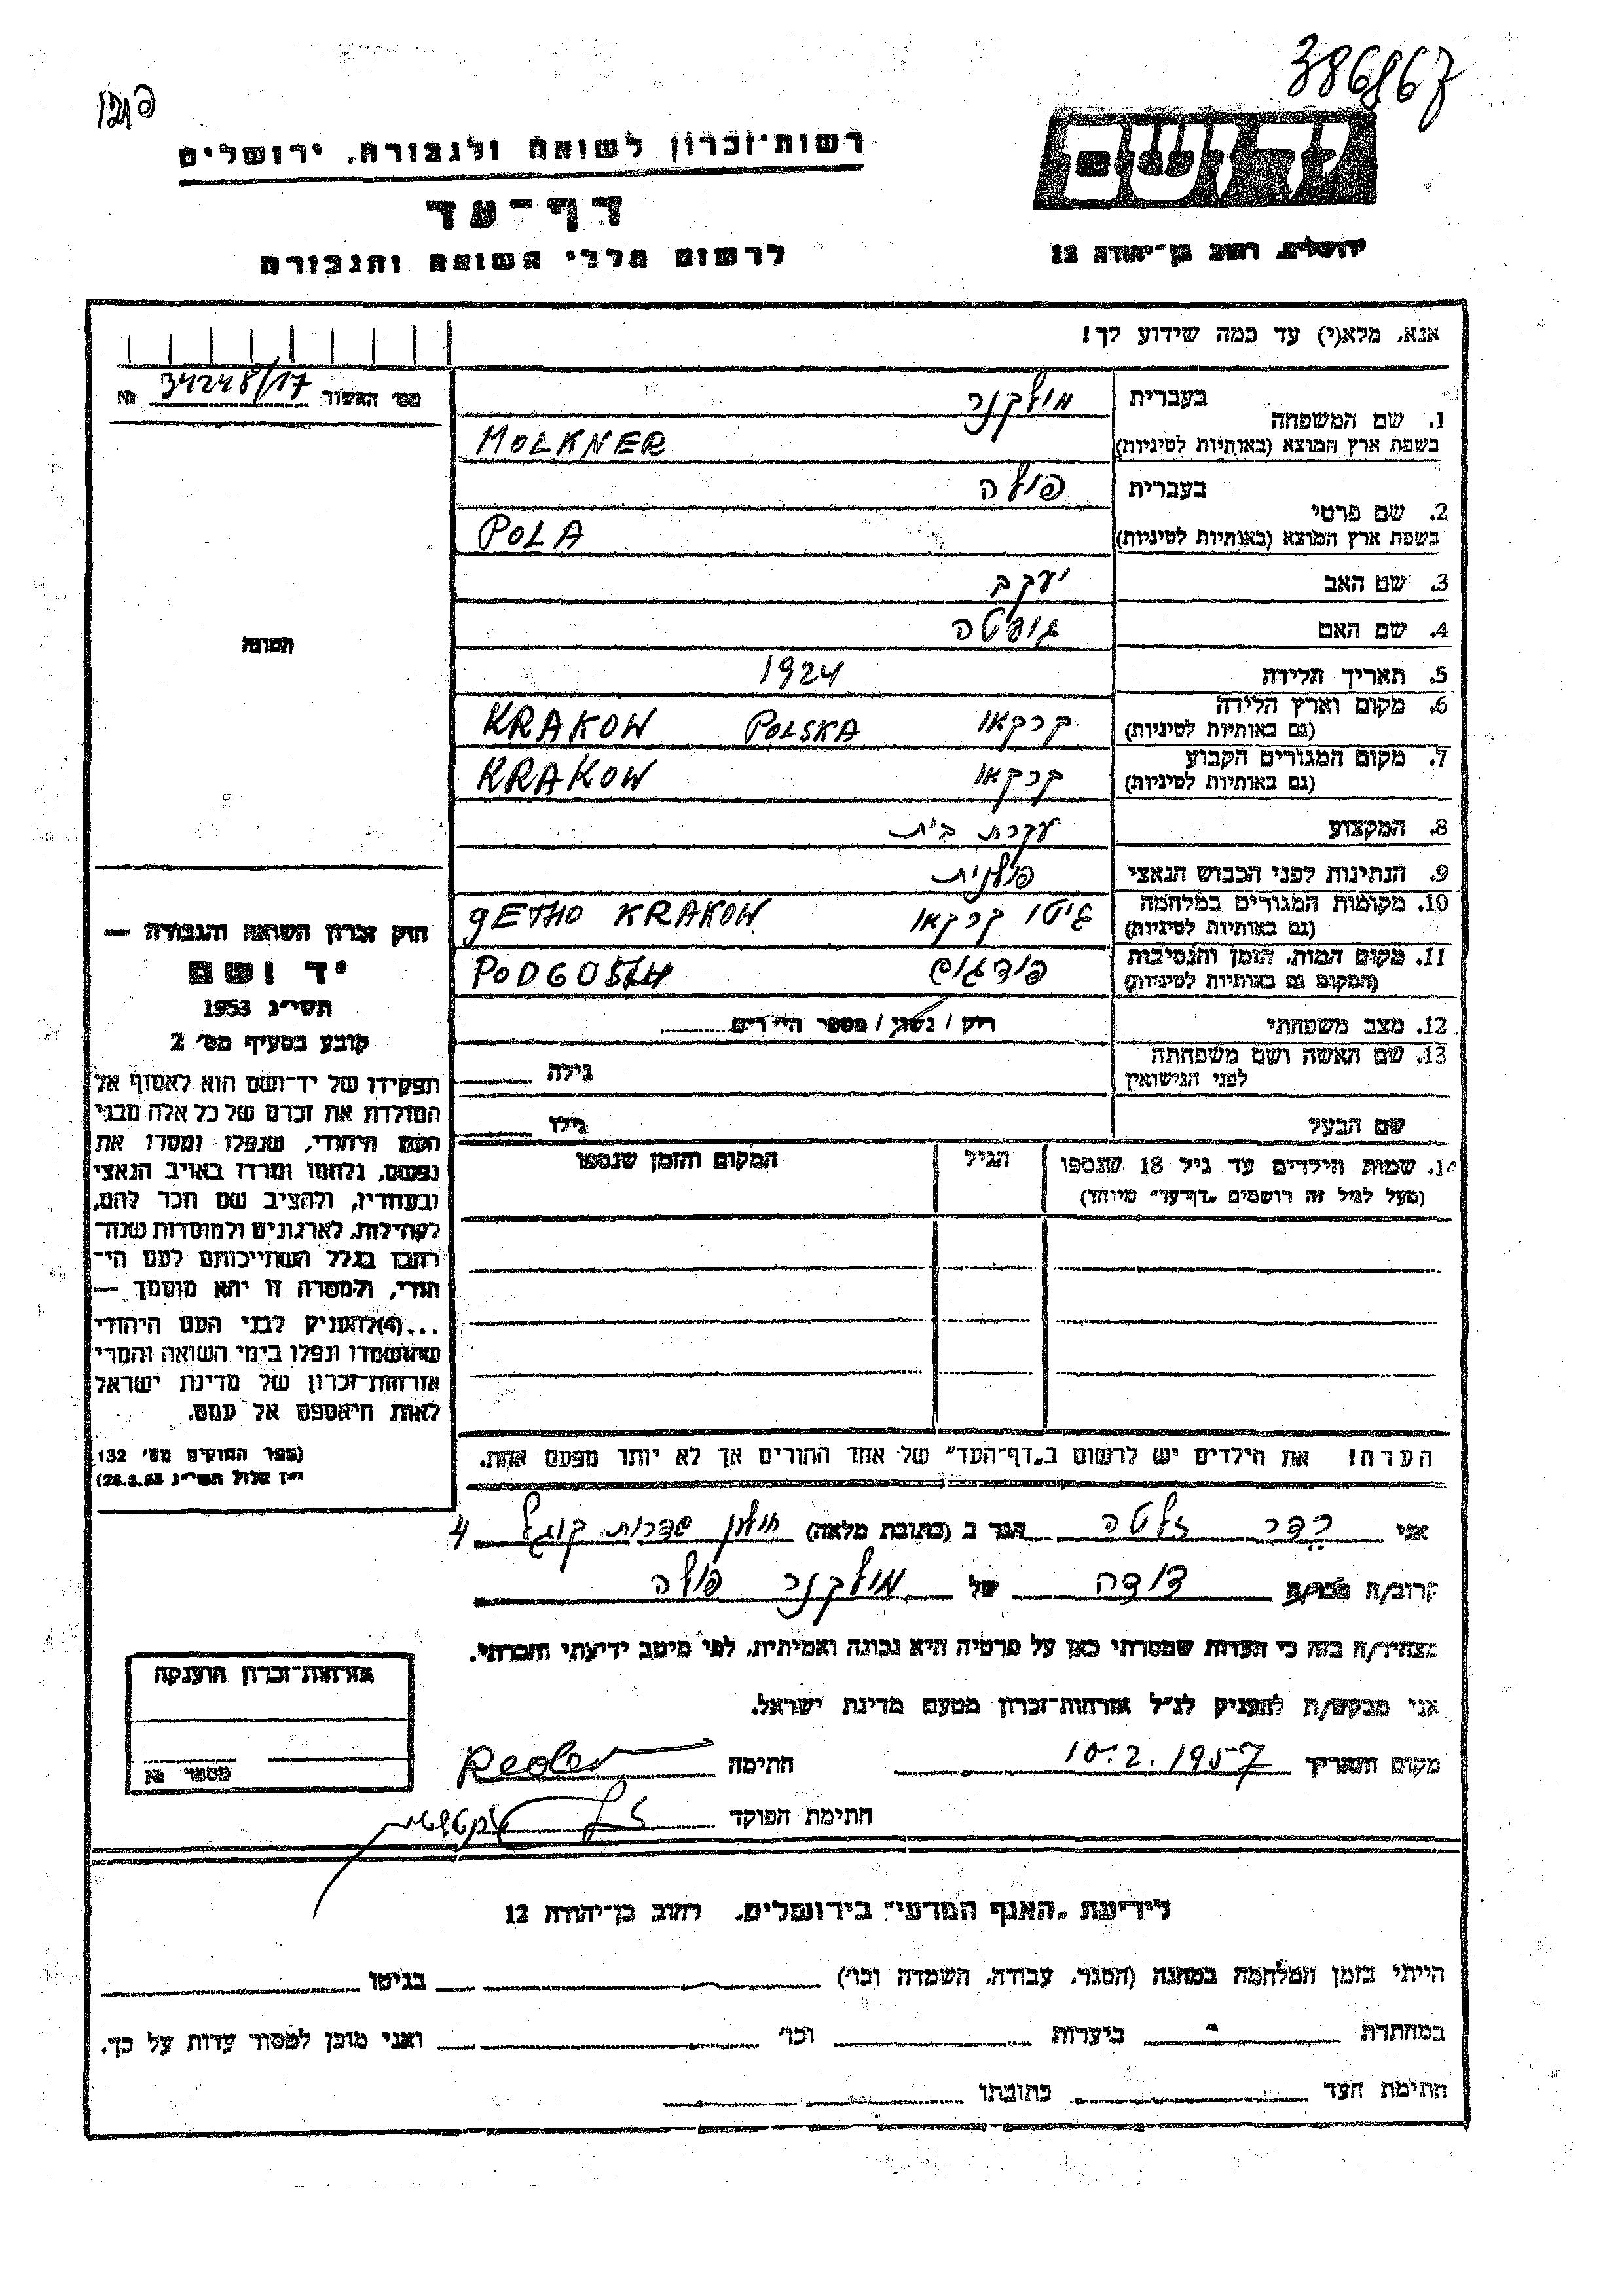 386867
רשות־זכרון לשואה ולגבורה, ירושלים
דף־עד
לרשום חללי השואה והגבורה
ידושם
ירושלים, רחוב בן־יהודה 12
אנא, מלא(י) עד כמה שידוע לך!
מס' האשור № 34248/17
1. שם המשפחה
בעברית
מולקנר
בשפת ארץ המוצא (באותיות לטיניות)
MOLKNER
2. שם פרטי
בעברית
פולה
בשפת ארץ המוצא (באותיות לטיניות)
POLA
3. שם האב
יעקב
4. שם האם
5. תאריך הלידה
1924
6. מקום וארץ הלידה
(גם באותיות לטיניות)
קרקאו POLSKA KRAKOW
7. מקום המגורים הקבוע
(גם באותיות לטיניות)
קרקאו KRAKOW
8. המקצוע
עקרת בית
9. הנתינות לפני הכבוש הנאצי
פולנית
10. מקומות המגורים במלחמה
(גם באותיות לטיניות)
גיטו קרקאו gETHO KRAKOW
11. מקום המות, הזמן והנסיבות
(המקום גם באותיות לטיניות)
12. מצב משפחתי
רוק / נשוי / מספר הילדים
13. שם האשה ושם משפחתה
לפני הנישואין
גילה
שם הבעל
גילו
14. שמות הילדים עד גיל 18 שנספו
(מעל לגיל זה רושמים „דף־עד" מיוחד)
הגיל
המקום והזמן שנספו
הערה! את הילדים יש לרשום ב„דף־העד" של אחד ההורים אך לא יותר מפעם אחת.
תמונה
חוק זכרון השואה והגבורה —
יד ושם
תשי"ג 1953
קובע בסעיף מס' 2
תפקידו של יד־ושם הוא לאסוף אל
המולדת את זכרם של כל אלה מבני
העם היהודי, שנפלו ומסרו את
נפשם, נלחמו ומרדו באויב הנאצי
ובעוזריו, ולהציב שם וזכר להם,
לקהילות, לארגונים ולמוסדות שנח־
רבו בגלל השתייכותם לעם הי־
הודי, ולמטרה זו יהא מוסמך —
...(4)להעניק לבני העם היהודי
שהושמדו ונפלו בימי השואה והמרי
אזרחות־זכרון של מדינת ישראל
לאות היאספם אל עמם.
(ספר החוקים מס' 132
י"ז אלול תשי"ג 28.8.53)
אני רדר זלטה הגר ב (כתובת מלאה) חולון שדרות קוגל 4
קרוב/ה מכר/ה דודה של מולקנר פולה
מצהיר/ה בזה כי העדות שמסרתי כאן על פרטיה היא נכונה ואמיתית, לפי מיטב ידיעתי והכרתי.
אני מבקש/ת להעניק לנ"ל אזרחות־זכרון מטעם מדינת ישראל.
מקום ותאריך 10.2.1957 חתימה Reder
חתימת הפוקד
אזרחות־זכרון הוענקה
מספר №
לידיעת „האגף המדעי" בירושלים, רחוב בן־יהודה 12
הייתי בזמן המלחמה במחנה (הסגר, עבודה, השמדה וכו') בגיטו
במחתרת ביערות וכו' ואני מוכן למסור עדות על כך.
חתימת העד כתובתו